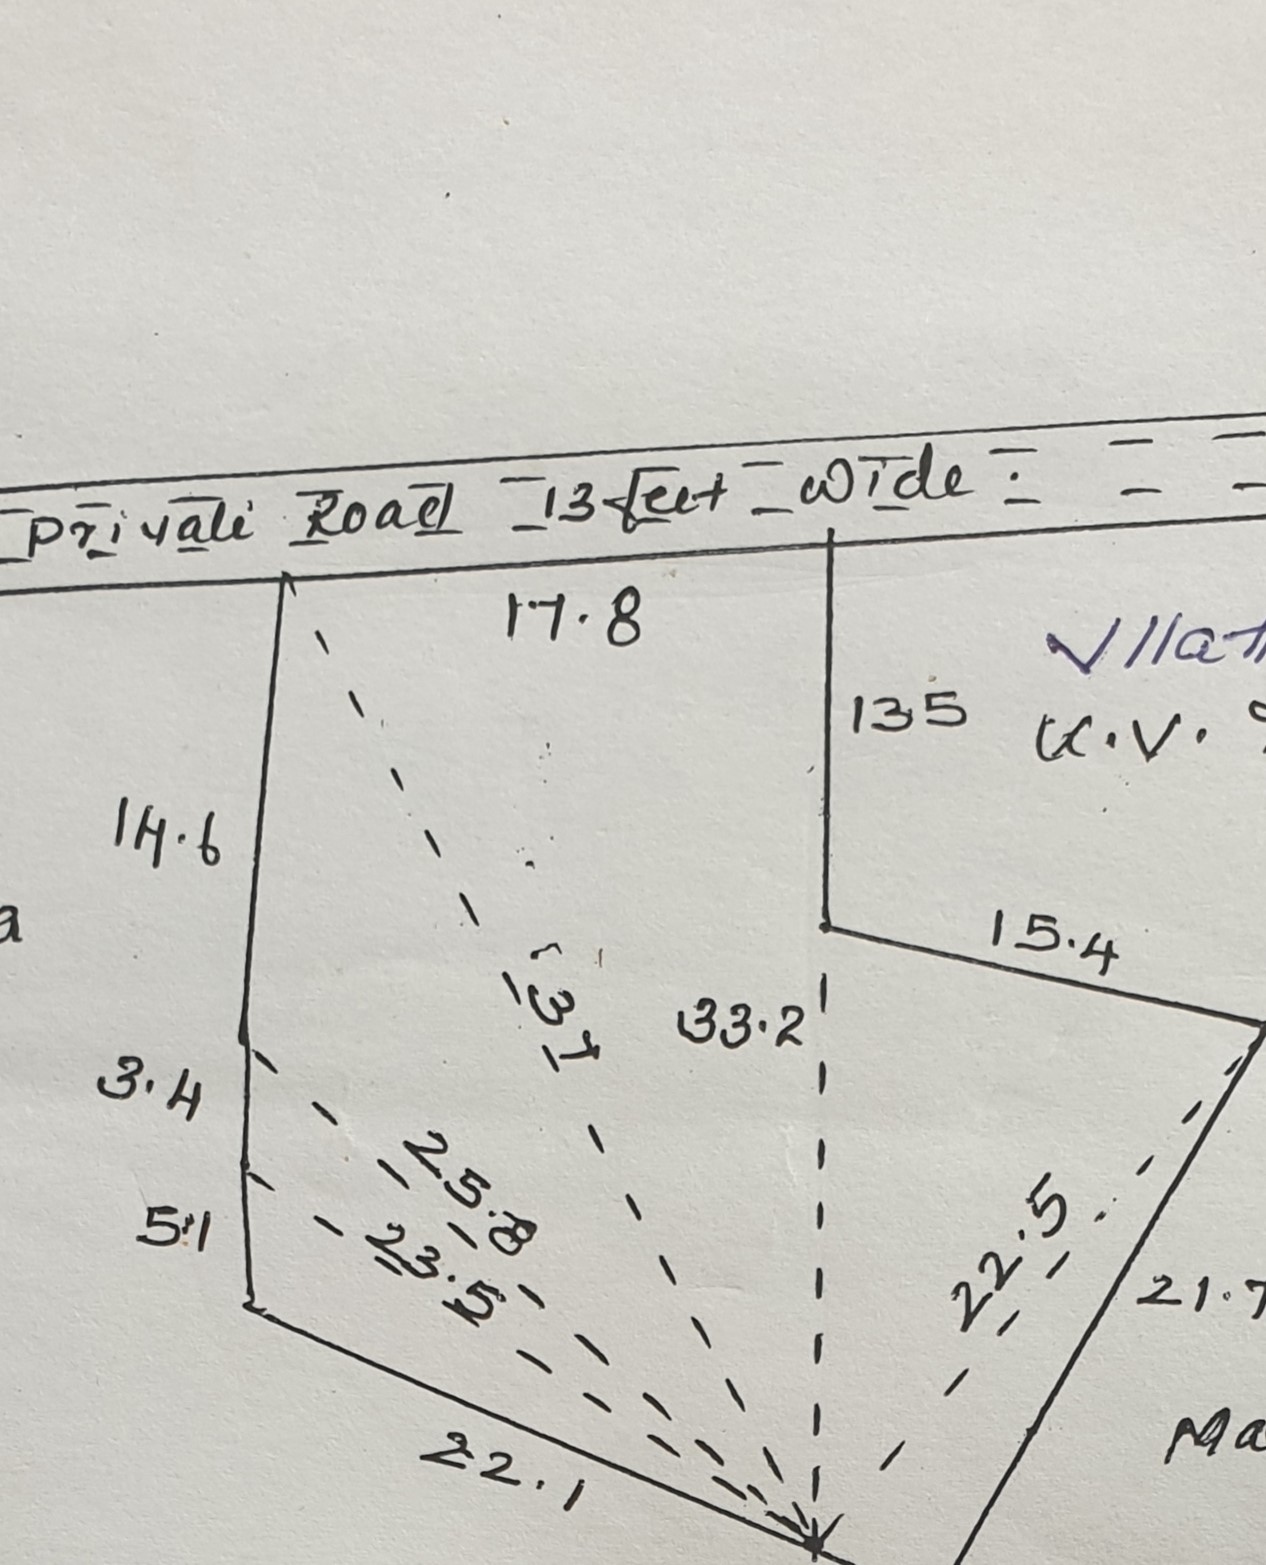 Private Road 13 feet Wide
17.8
135
14.6
15.4
33.2
37
3.4
25.8
5.1
23.5
22.5
21.7
22.1